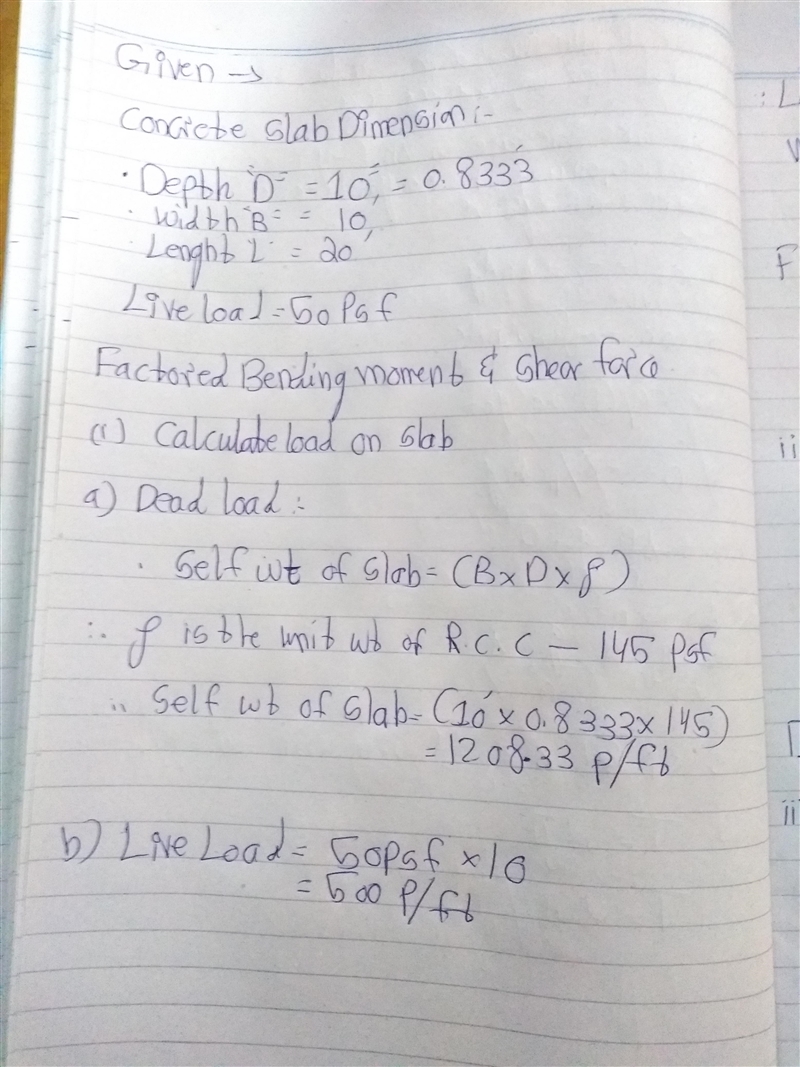 Given →
Concrete Slab Dimension:-
· Depth "D" = 10", = 0.8333'
· Width "B" = 10,
· Lenght L = 20'
Live load = 50 Psf
Factored Bending moment & Shear force
(1) Calculate load on Slab
a) Dead load :
· Self wt of Slab = (B×D×ρ)
∴ ρ is the unit wt of R.C.C — 145 Psf
∴ Self wt of Slab = (10' × 0.8333 × 145)
= 1208.33 P/ft
b) Live Load = 50Psf × 10
= 500 P/ft
: L
F
ii
ii